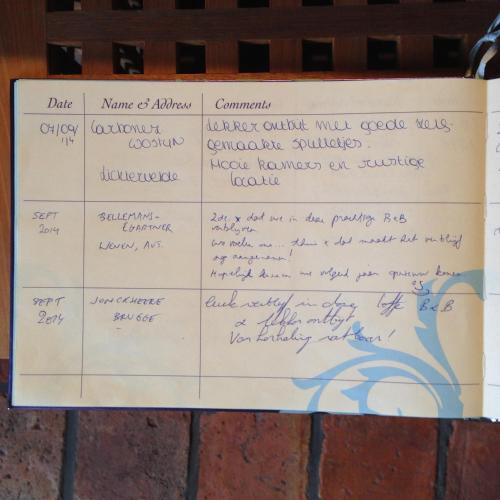 Date Name & Address Comments
07/09/ Carboner Lekker ontbijt met goede zelf-
'14 WOSTYN gemaakte spulletjes.
Mooie kamers en rustige
Lichtervelde locatie
SEPT BELLEMANS- 2de x dat we in deze prachtige B&B
2014 GÄRTNER verblijven
WENEN, AUS. we voelen ons... thuis & dat maakt het verblijf
erg aangenaam!
Hopelijk kunnen we volgend jaar opnieuw komen
SEPT JONCKHEERE Leuk verblijf in deze toffe B&B
2014 BRUGGE & lekker ontbijt
Voor herhaling vatbaar!